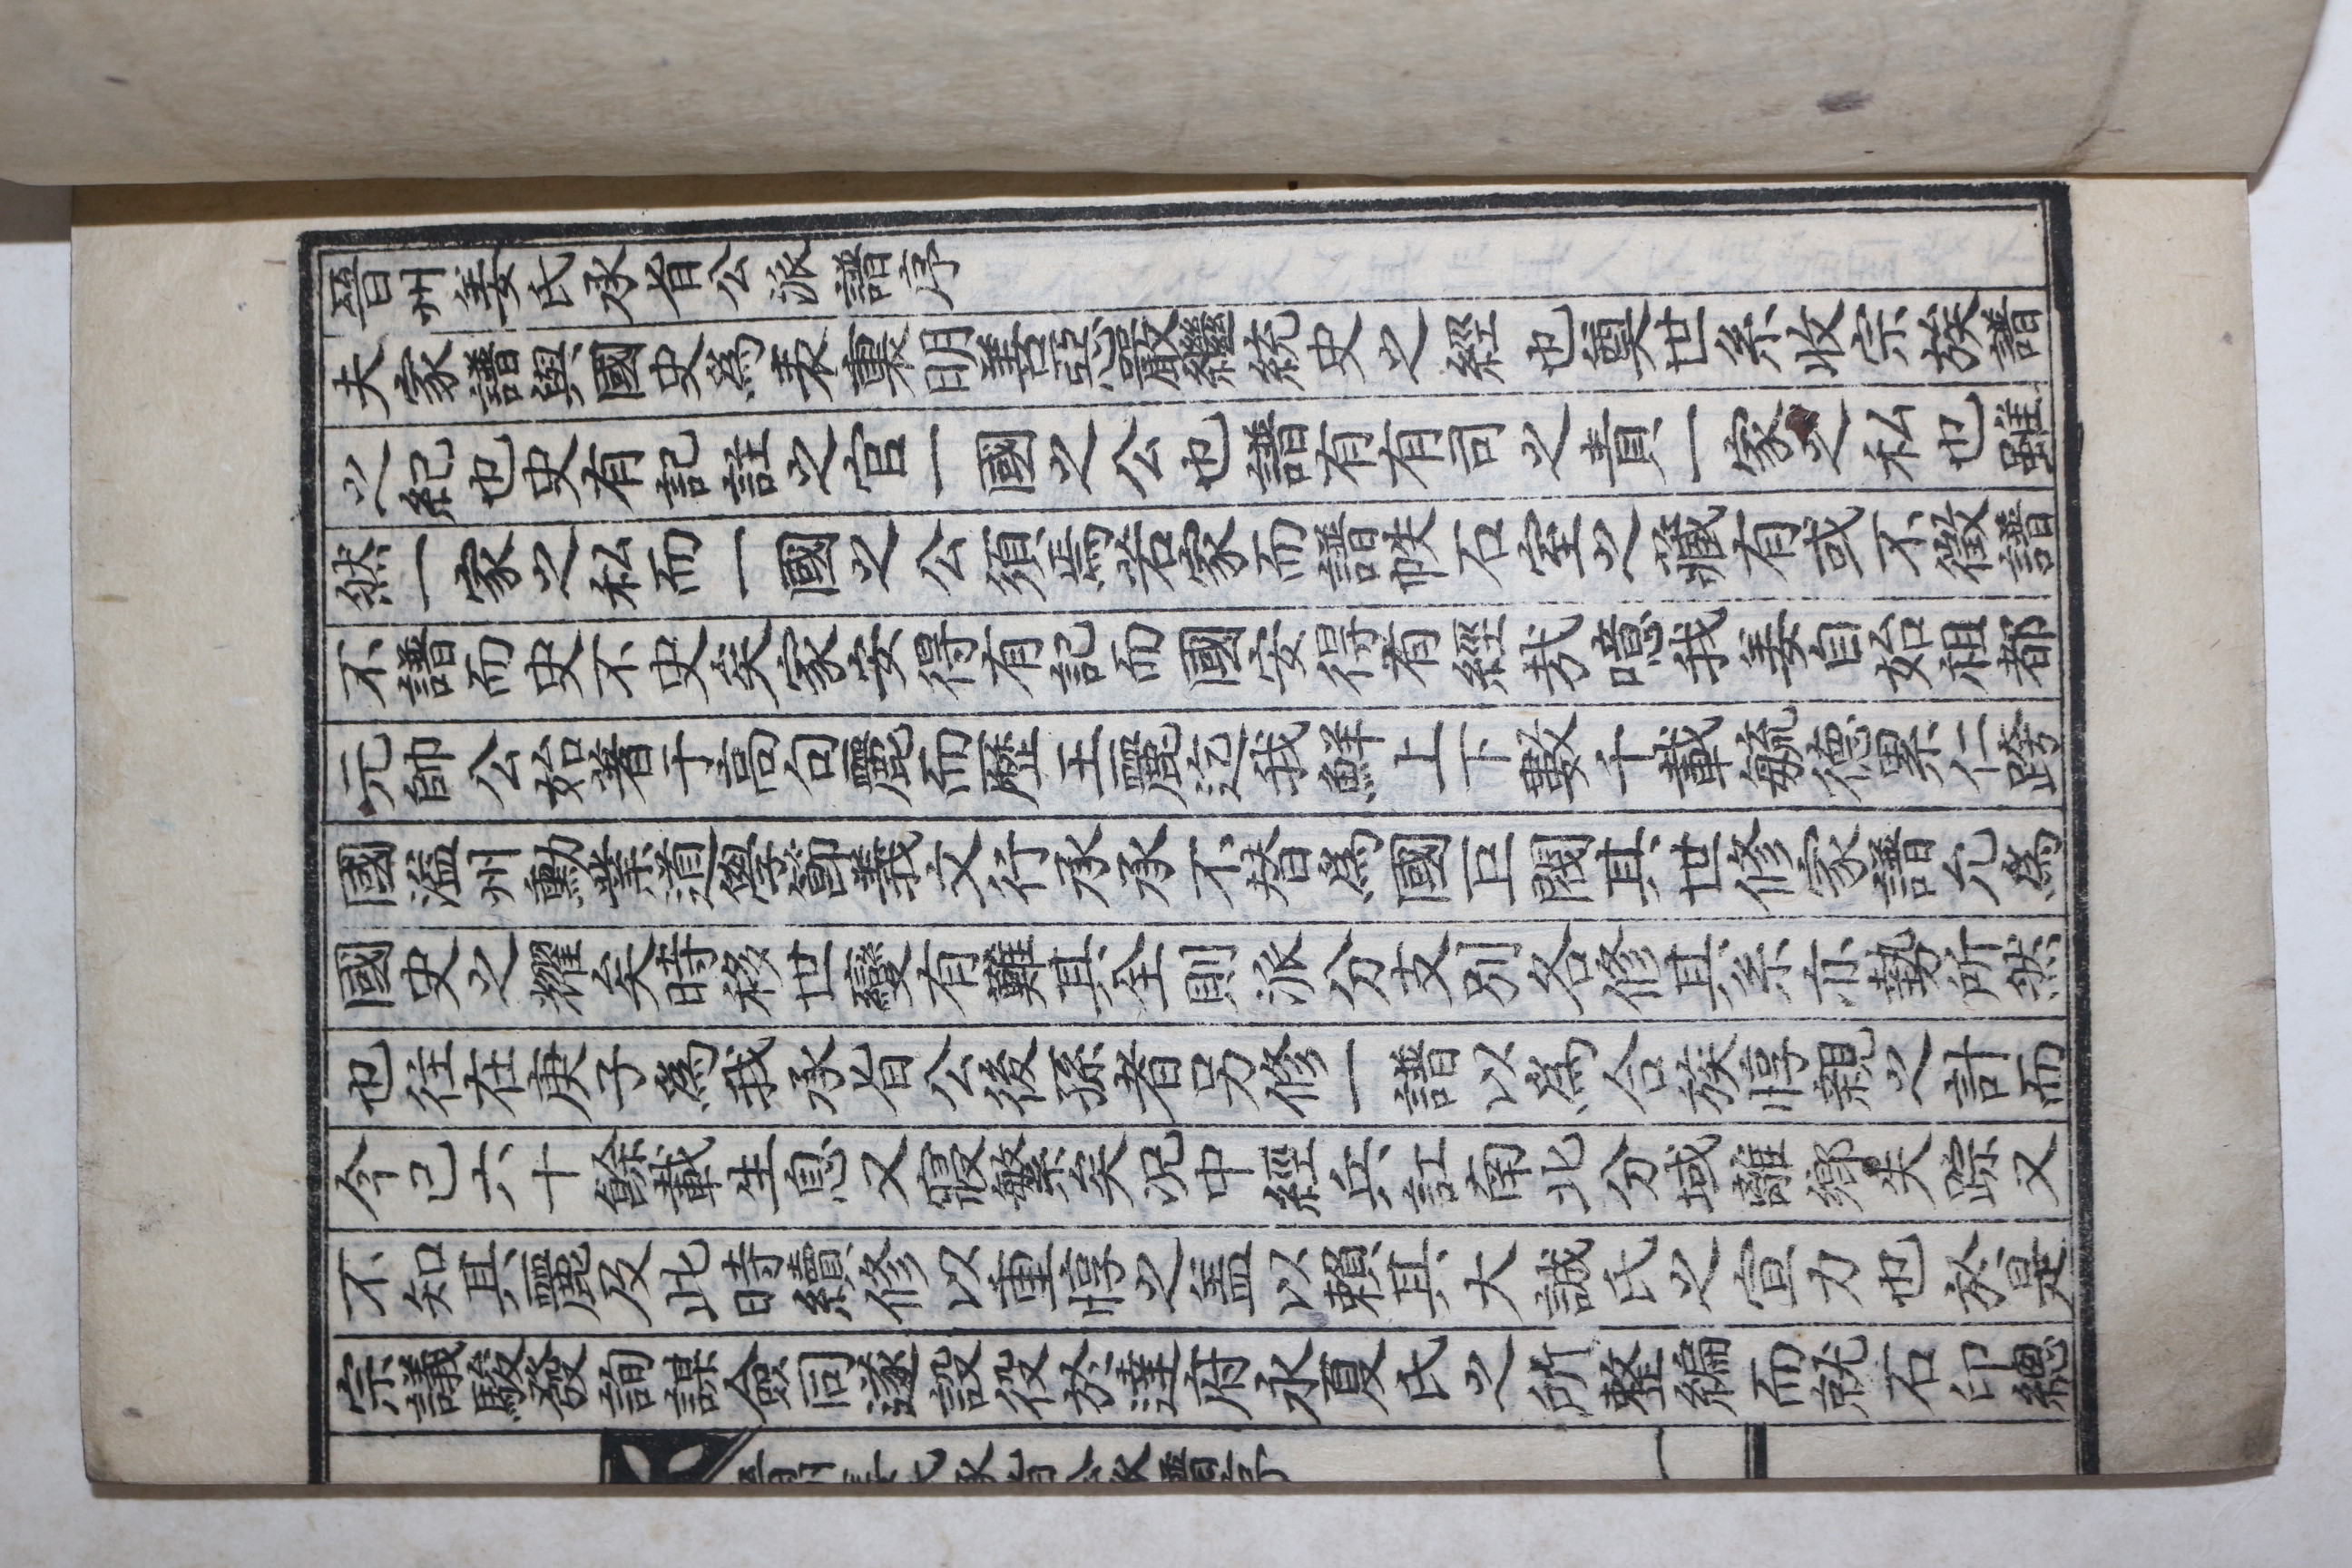 晉州姜氏承旨公派譜序
夫家譜與國史爲表裏明善惡嚴繼統史之經也奠世系收宗族譜
之紀也史有記註之官一國之公也譜有有司之責一家之私也雖
然一家之私而一國之公須焉若家而譜帙石室之藏有或不徵譜
不譜而史不史矣家安得有記而國安得有經哉噫我姜自始祖都
元帥公始著于高句麗而歷王麗迄我鮮上下數十載毓德累仁跨
國溢州勳業道學節義文行承承不替爲國巨閥其世修家譜允爲
國史之耀矣時移世變有難其全則派分支別各修其系亦勢所然
也往在庚子爲我承旨公後孫者另修一譜以爲合族惇親之計而
今已六十餘載生息又寢繁矣況中經兵訌南北分域離鄉失踪又
不知其麗及此時續修以重惇之盖以賴其大誠氏之宣力也於是
宗議駿發詢謀僉同遂設役於達府永夏氏之所整編而就石印總
晉州姜氏承旨公派譜序